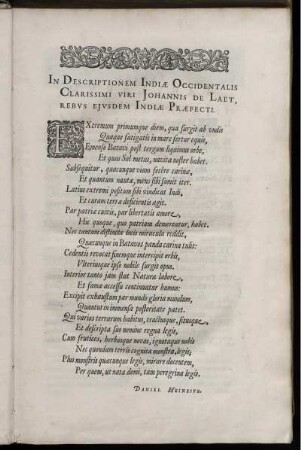 IN DESCRIPTIONEM INDIÆ OCCIDENTALIS
CLARISSIMI VIRI JOHANNIS DE LAET,
REBUS EJUSDEM INDIÆ PRÆFECTI.
EXtremum primamque diem, qua surgit ab undis
Quaque fatigatis in mare fertur equis,
Emensus Batavus post tergum liquimus orbe,
Et quas Sol metas, navita noster habet.
Subsequitur, quacunque viam fecere carina,
Et quantum nauta, mens sibi sumit iter.
Latius extremi positum sibi vindicat Indi,
Et curam terra deficientis agit.
Par patriæ cunis, par libertatis amore,
Hic quoque, qui patriam demereatur, habet.
Nec tantum distincta suis miracula reddit,
Quacunque in Batavos panda carina tulit:
Cedentis revocat finemque intercipit orbis,
Ulteriusque ipse nobile surgit opus.
Interior tanto jam stat Natura labore,
Et fama accessu continuatur humus:
Excipit exhaustum par mundi gloria mundum,
Quantus in immensa posteritate patet.
Qui varios terrarum habitus, tractusque, situsque,
Et descripta suo nomine regna legis,
Cum frutices, herbasque novas, ignotaque nobis
Nec quondam terris cognita monstra, legis;
Plus monstris quacunque legis, mirare docentem,
Per quem, ut nota domi, tam peregrina legis.
DANIEL HEINSIUS.